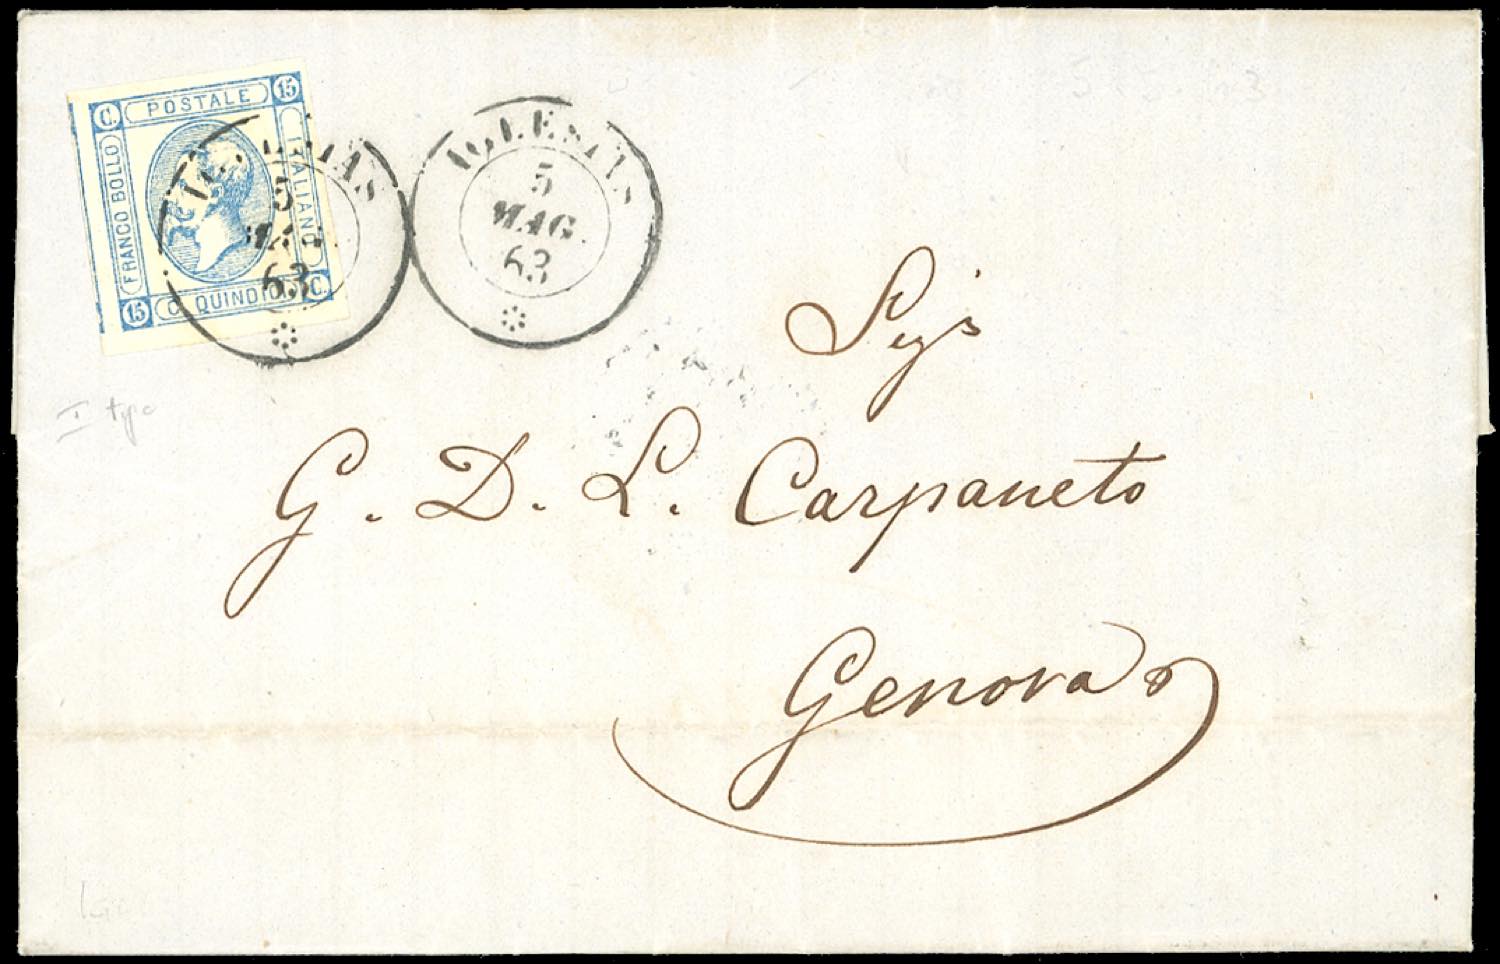 C. POSTALE 15
FRANCO BOLLO
ITALIANO
15 C. QUINDICI C.
IGLESIAS
5
MAG.
63
IGLESIAS
5
MAG.
63
5.5.63
I type
Sigr
G. D. L. Carpaneto
Genova